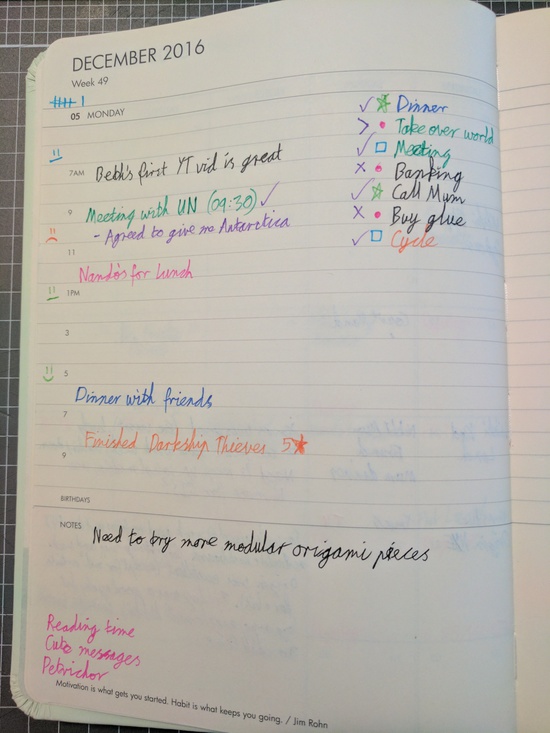 DECEMBER 2016
Week 49
05 MONDAY
Dinner
Take over world
Meeting
Banking
Call Mum
Buy glue
Cycle
7AM
Bekk's first YT vid is great
9
Meeting with UN (09:30)
- Agreed to give me Antarctica
11
Nando's for lunch
1PM
3
5
Dinner with friends
7
Finished Darkship Thieves 5
9
BIRTHDAYS
NOTES
Need to try more modular origami pieces
Reading time
Cute messages
Petrichor
Motivation is what gets you started. Habit is what keeps you going. / Jim Rohn